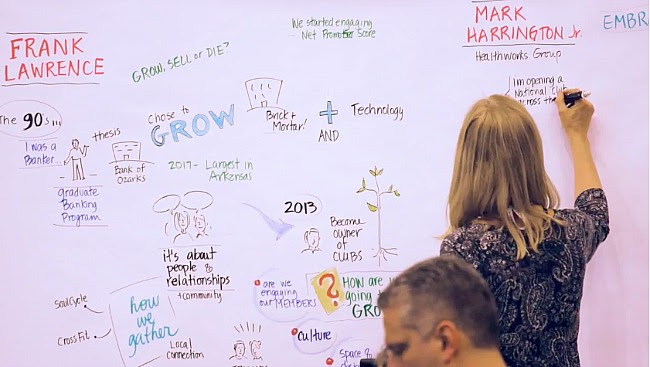 FRANK
LAWRENCE
GROW, SELL or DIE?
We started engaging
Net Promoter Score
MARK
HARRINGTON Jr.
Healthworks Group
EMBR
I'm opening a
National Club
across the
The 90's...
I was a
Banker
thesis
graduate
Banking
Program
Bank of
Ozarks
chose to
GROW
Brick +
Mortar!
+
AND
Technology
2017 - Largest in
Arkansas
it's about
people &
relationships
+ community
2013
Become
owner
of
CLUBS
SoulCycle
CrossFit
how
we
gather
Local
connection
are we
engaging
our MEMBERS
?
HOW are
going
GRO
culture
Space &